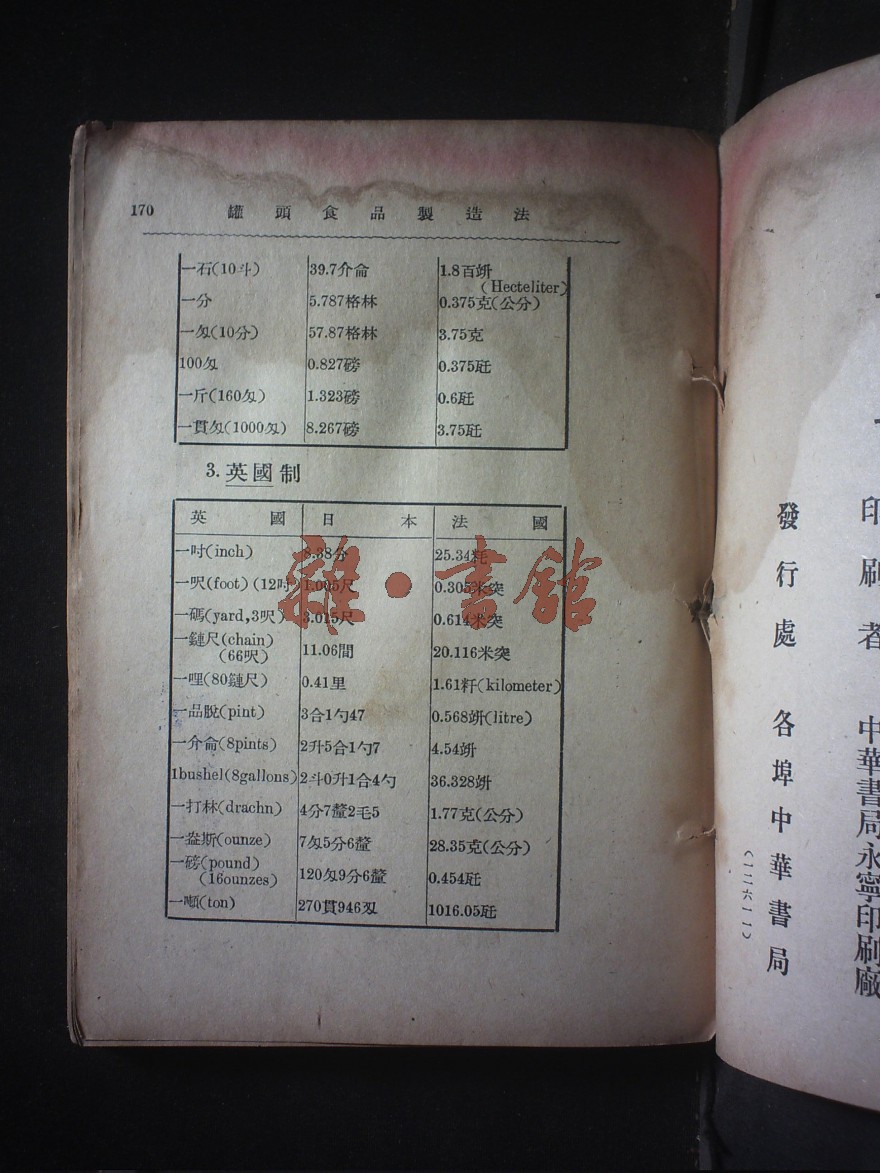 170 罐頭食品製造法
一石(10斗) 39.7介侖 1.8百竔
(Hecteliter)
一分 5.787格林 0.375克(公分)
一匁(10分) 57.87格林 3.75克
100匁 0.827磅 0.375瓩
一斤(160匁) 1.323磅 0.6瓩
一貫匁(1000匁) 8.267磅 3.75瓩
3. 英國制
英國 日本 法國
一吋(inch) 8.38分 25.34粍
一呎(foot)(12吋) 1.005尺 0.305米突
一碼(yard,3呎) 3.015尺 0.614米突
一鏈尺(chain)
(66呎) 11.06間 20.116米突
一哩(80鏈尺) 0.41里 1.61粁(kilometer)
一品脫(pint) 3合1勺47 0.568竔(litre)
一介侖(8pints) 2升5合1勺7 4.54竔
1bushel(8gallons) 2斗0升1合4勺 36.328竔
一打林(drachn) 4分7釐2毛5 1.77克(公分)
一盎斯(ounze) 7匁5分6釐 28.35克(公分)
一磅(pound)
(16ounzes) 120匁9分6釐 0.454瓩
一噸(ton) 270貫946匁 1016.05瓩
雜·書館
印刷者 中華書局永寧印刷廠
發行處 各埠中華書局
(一二六一一)